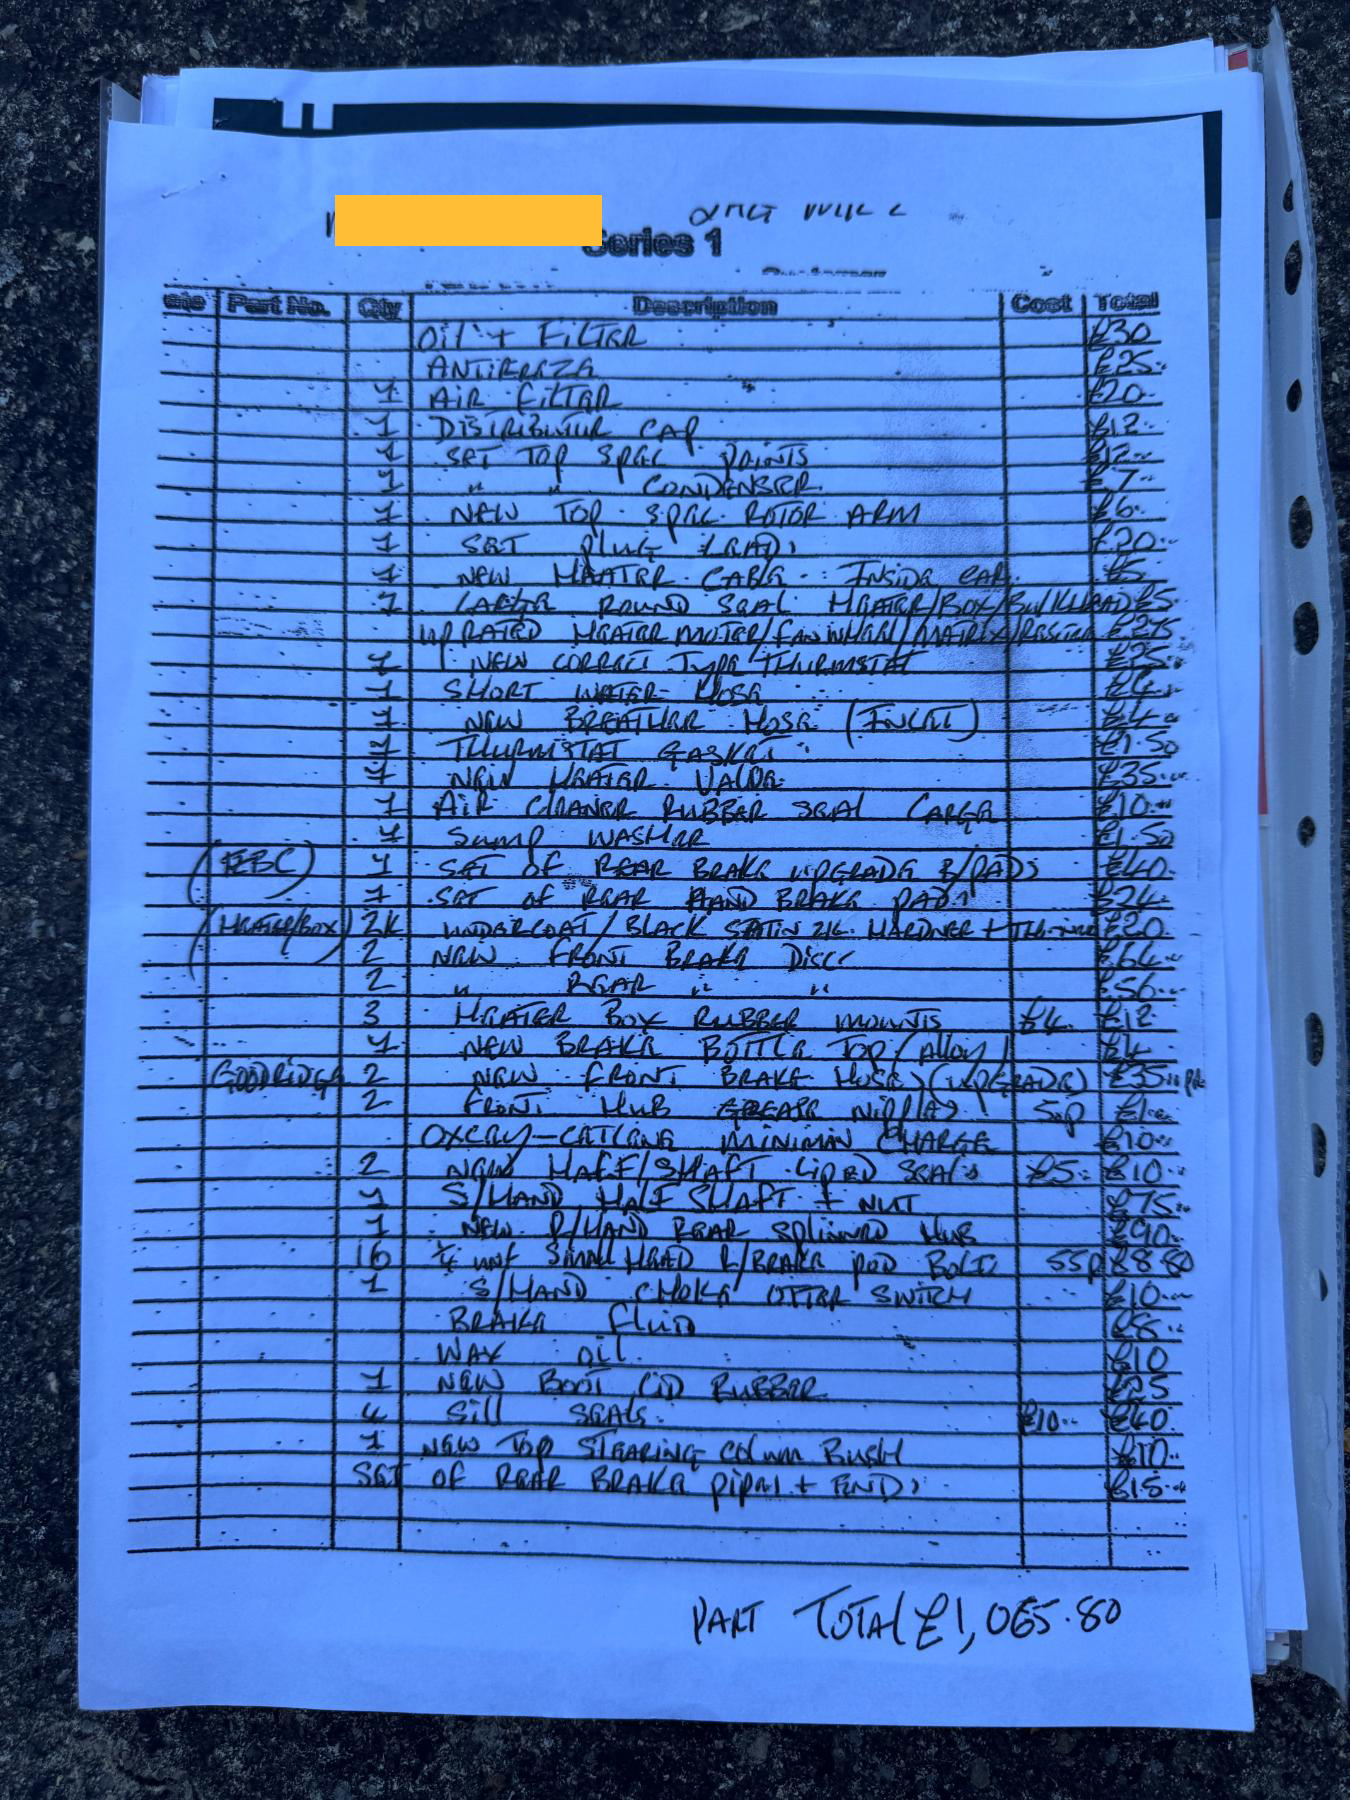 Series 1
Part No. Qty Description Cost Total
OIL + FILTER £30
ANTIFREEZE £25
1 AIR FILTER £20
1 DISTRIBUTUR CAP £12
1 SET TOP SPEC POINTS £12
1 " " CONDENSER £7
1 NEW TOP SPEC ROTOR ARM £6
1 SET PLUG LEADS £20
1 NEW HEATER CABLE INSIDE CAR £5
1 LARGE ROUND SEAL HEATER/BOX/BULKHEAD £5
UPRATED HEATER MOTER/FANWHEEL/MATRIX/RESISTER £275
1 NEW CORRECT TYPE THURMSTAT £25
1 SHORT WATER HOSE £4
1 NEW BREATHER HOSE (INLET) £4
1 THURMSTAT GASKET £1.50
1 NEW HEATER VALVE £35
1 AIR CLEANER RUBBER SEAL LARGE £10
1 SUMP WASHER £1.50
(EBC) 1 SET OF REAR BRAKE UPGRADE B/PADS £40
1 SET OF REAR HAND BRAKE PADS £24
(HEATER/BOX) 2K UNDERCOAT/BLACK SATIN 2K HARDNER + THINNER £20
2 NEW FRONT BRAKE DISCS £64
2 " REAR " " £56
3 HEATER BOX RUBBER MOUNTS £4 £12
1 NEW BRAKE BOTTLE TOP (ALLOY) £4
GOODRIDGE 2 NEW FRONT BRAKE HOSES (UPGRADE) £35 PR
2 FRONT HUB GREASE NIPPLES 50p £1
OXCEY-CETLENE MINIMIN CHARGE £10
2 NEW HALF/SHAFT LIPED SEALS £5 £10
1 S/HAND HALF SHAFT + NUT £75
1 NEW R/HAND REAR SPLINED HUB £90
16 ¼ UNF SMALL HEAD R/BRAKE POD BOLTS 55p £8.80
1 S/HAND CHOKE OTTER SWITCH £10
BRAKE FLUID £8
WAX OIL £10
1 NEW BOOT LID RUBBER £25
4 SILL SEALS £10 £40
1 NEW TOP STEARING COLUMN BUSH £10
SET OF REAR BRAKE PIPES + ENDS £15
PART TOTAL £1,065.80